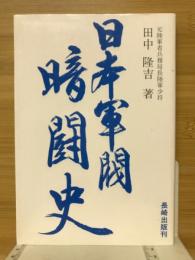 元陸軍省兵務局長陸軍少将
田中隆吉 著
日本軍閥
暗闘史
長崎出版刊